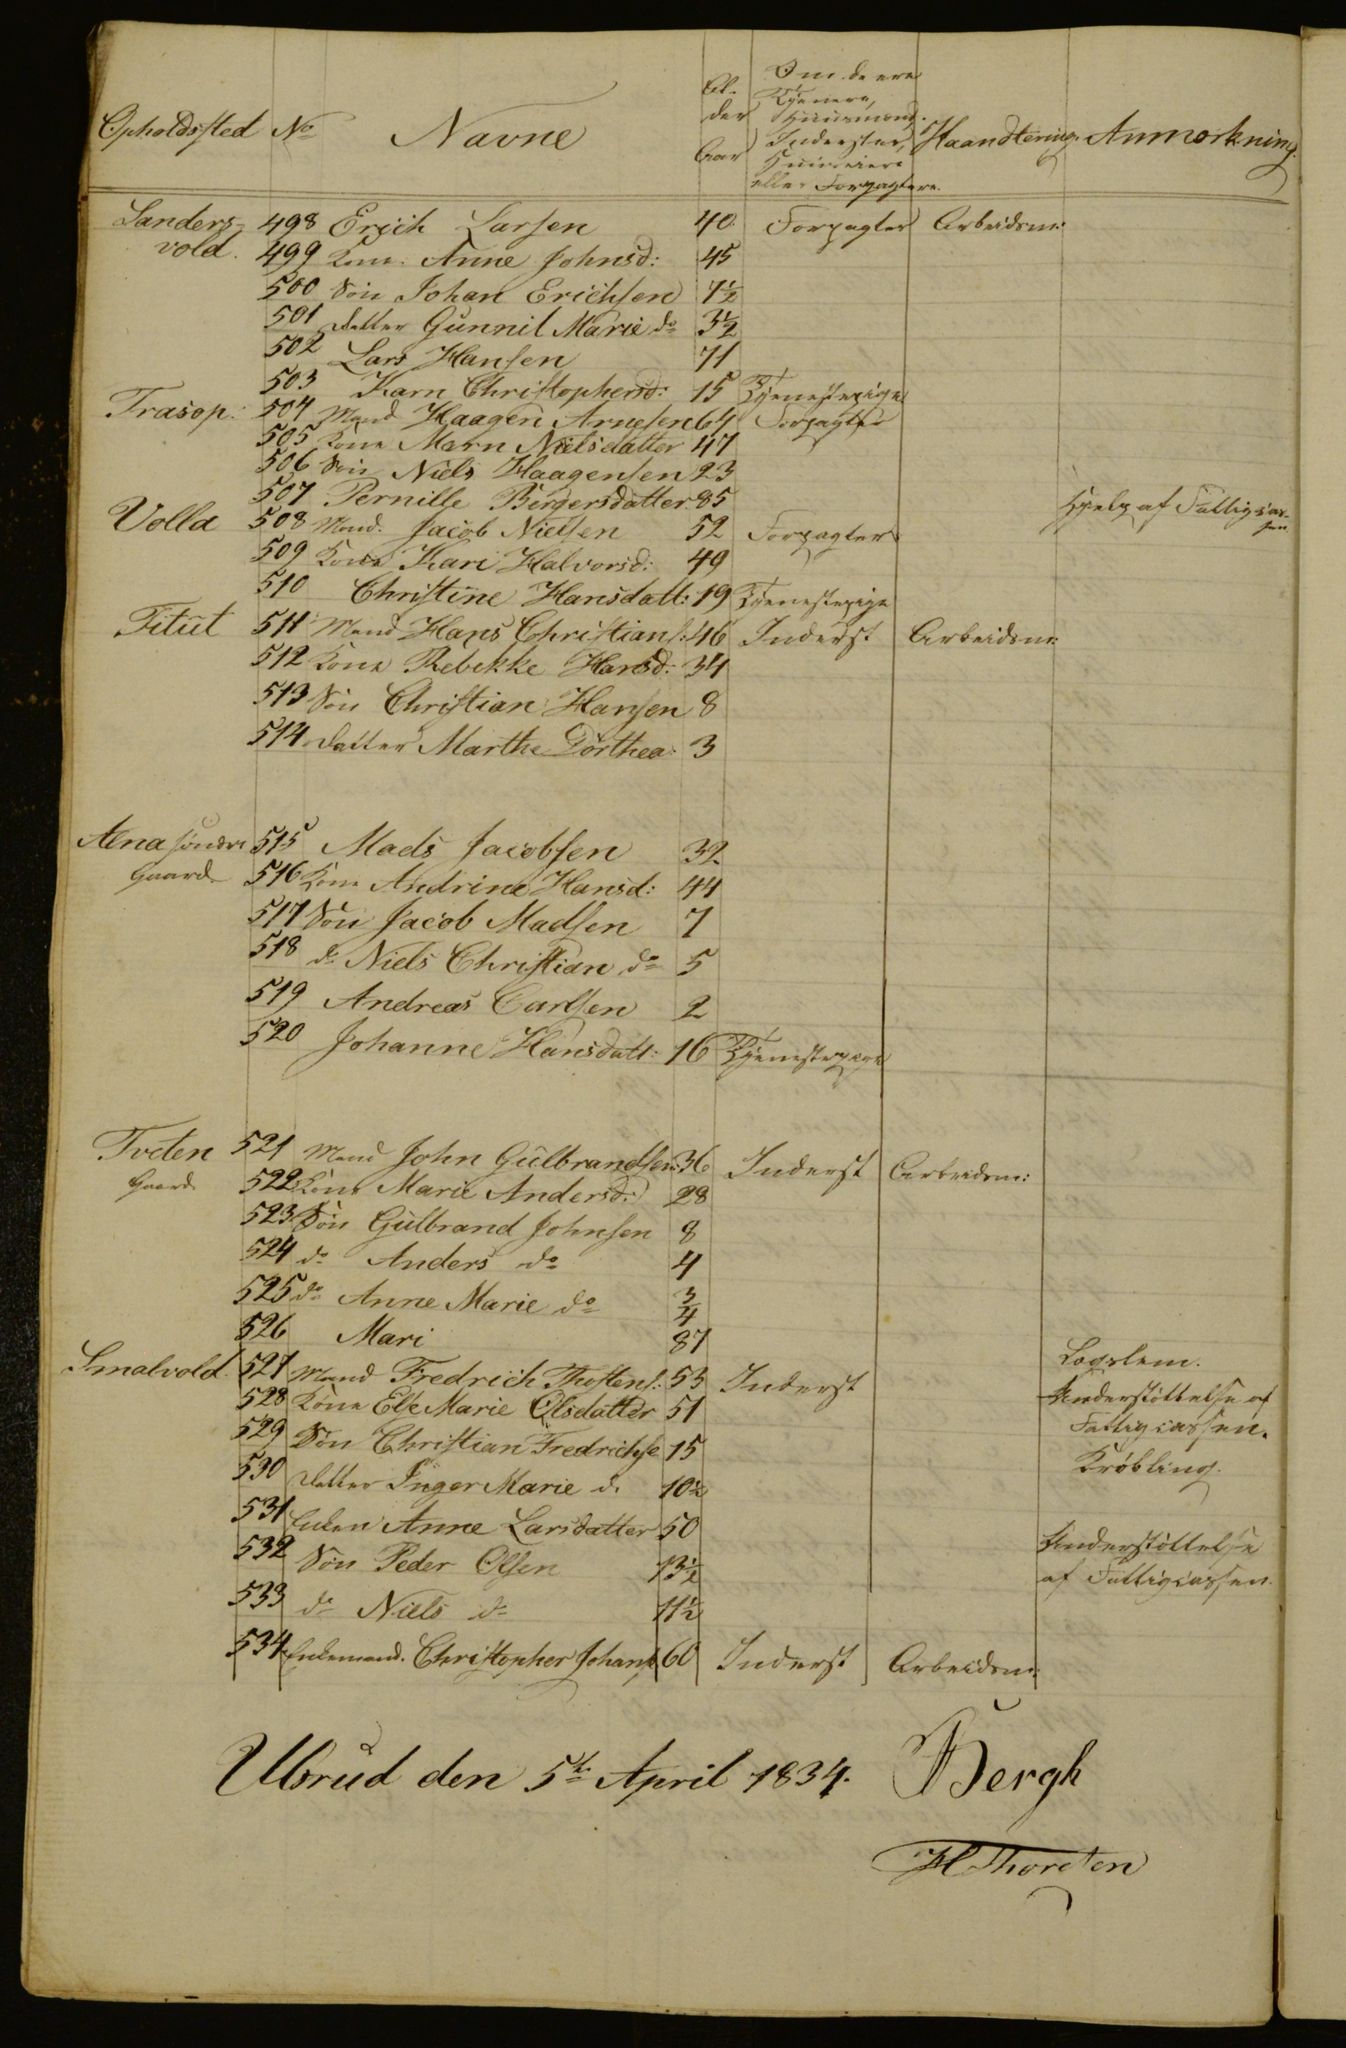 Opholdssted No Navne Al- der Aar Om de ere Tjenere, Huusmænd, Inderster, Huuseiere eller Forpagtere. Haandtering Anmærkning.
Sanders- 498 Erich Larsen 40 Forpagter Arbeidsm:
vold. 499 Kone Anne Johnsd: 45
500 Søn Johan Erichsen 7½
501 datter Gunnil Marie do 3½
502 Lars Hansen 71
503 Karn Christophersd: 15 Tjenestepige
Trasop: 504 Mand Haagen Arnesen 64 Forpagter
505 Kone Marn Nielsdatter 47
506 Søn Niels Haagensen 23
507 Pernille Børgersdatter 85 Hjelp af Fattigcas-
sen
Volla 508 Mand. Jacob Nielsen 52 Forpagter
509 Kone Kari Halvorsd: 49
510 Christine Hansdatt: 19 Tjenestepige
Titut 511 Mand Hans Christians: 46 Inderst Arbeidsm:
512 Kone Rebekke Hansd: 34
513 Søn Christian Hansen 8
514 datter Marthe Dorthea 3
Alna søndre 515 Mads Jacobsen 32
Gaard 516 Kone Andrine Hansd: 44
517 Søn Jacob Madsen 7
518 do Niels Christian do 5
519 Andreas Carlsen 2
520 Johanne Hansdatt: 16 Tjenestepige
Tveten 521 Mand John Gulbrandsen 36 Inderst Arbeidsm:
Gaard 522 Kone Marie Andersd: 28
523 Søn Gulbrand Johnsen 8
524 do Anders do 4
525 do Anne Marie do ¾
526 Mari 87 Logslem.
Smalvold. 527 Mand Fredrich Thostens: 53 Inderst
528 Kone Else Marie Olsdatter 51 Understøttelse af
529 Søn Christian Fredrichse 15 Fattigcassen.
530 datter Inger Marie d. 10½ Krøbling.
531 Enken Anne Larsdatter 50
532 Søn Peder Olsen 13½ Understøttelse
533 do Niels do 11½ af Fattigcassen.
534 Enkemand. Christopher Johans 60 Inderst Arbeidsm:
Ulsrud den 5te April 1834. Bergh
H Thoresen